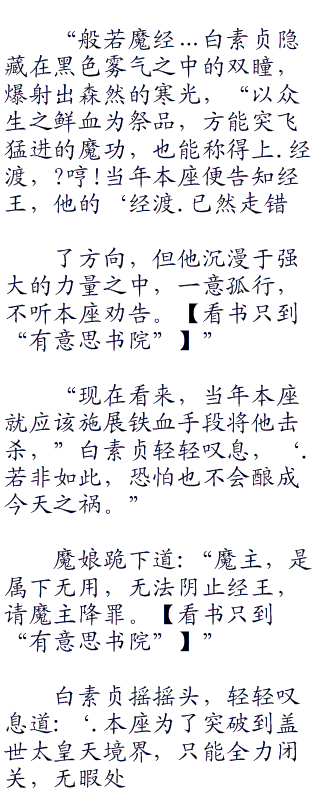 “般若魔经…白素贞隐
藏在黑色雾气之中的双瞳，
爆射出森然的寒光，“以众
生之鲜血为祭品，方能突飞
猛进的魔功，也能称得上.经
渡，?哼!当年本座便告知经
王，他的‘经渡.已然走错
了方向，但他沉漫于强
大的力量之中，一意孤行，
不听本座劝告。【看书只到
“有意思书院”】”
“现在看来，当年本座
就应该施展铁血手段将他击
杀，”白素贞轻轻叹息，‘.
若非如此，恐怕也不会酿成
今天之祸。”
魔娘跪下道:“魔主，是
属下无用，无法阴止经王，
请魔主降罪。【看书只到
“有意思书院”】”
白素贞摇摇头，轻轻叹
息道:‘.本座为了突破到盖
世太皇天境界，只能全力闭
关，无暇处